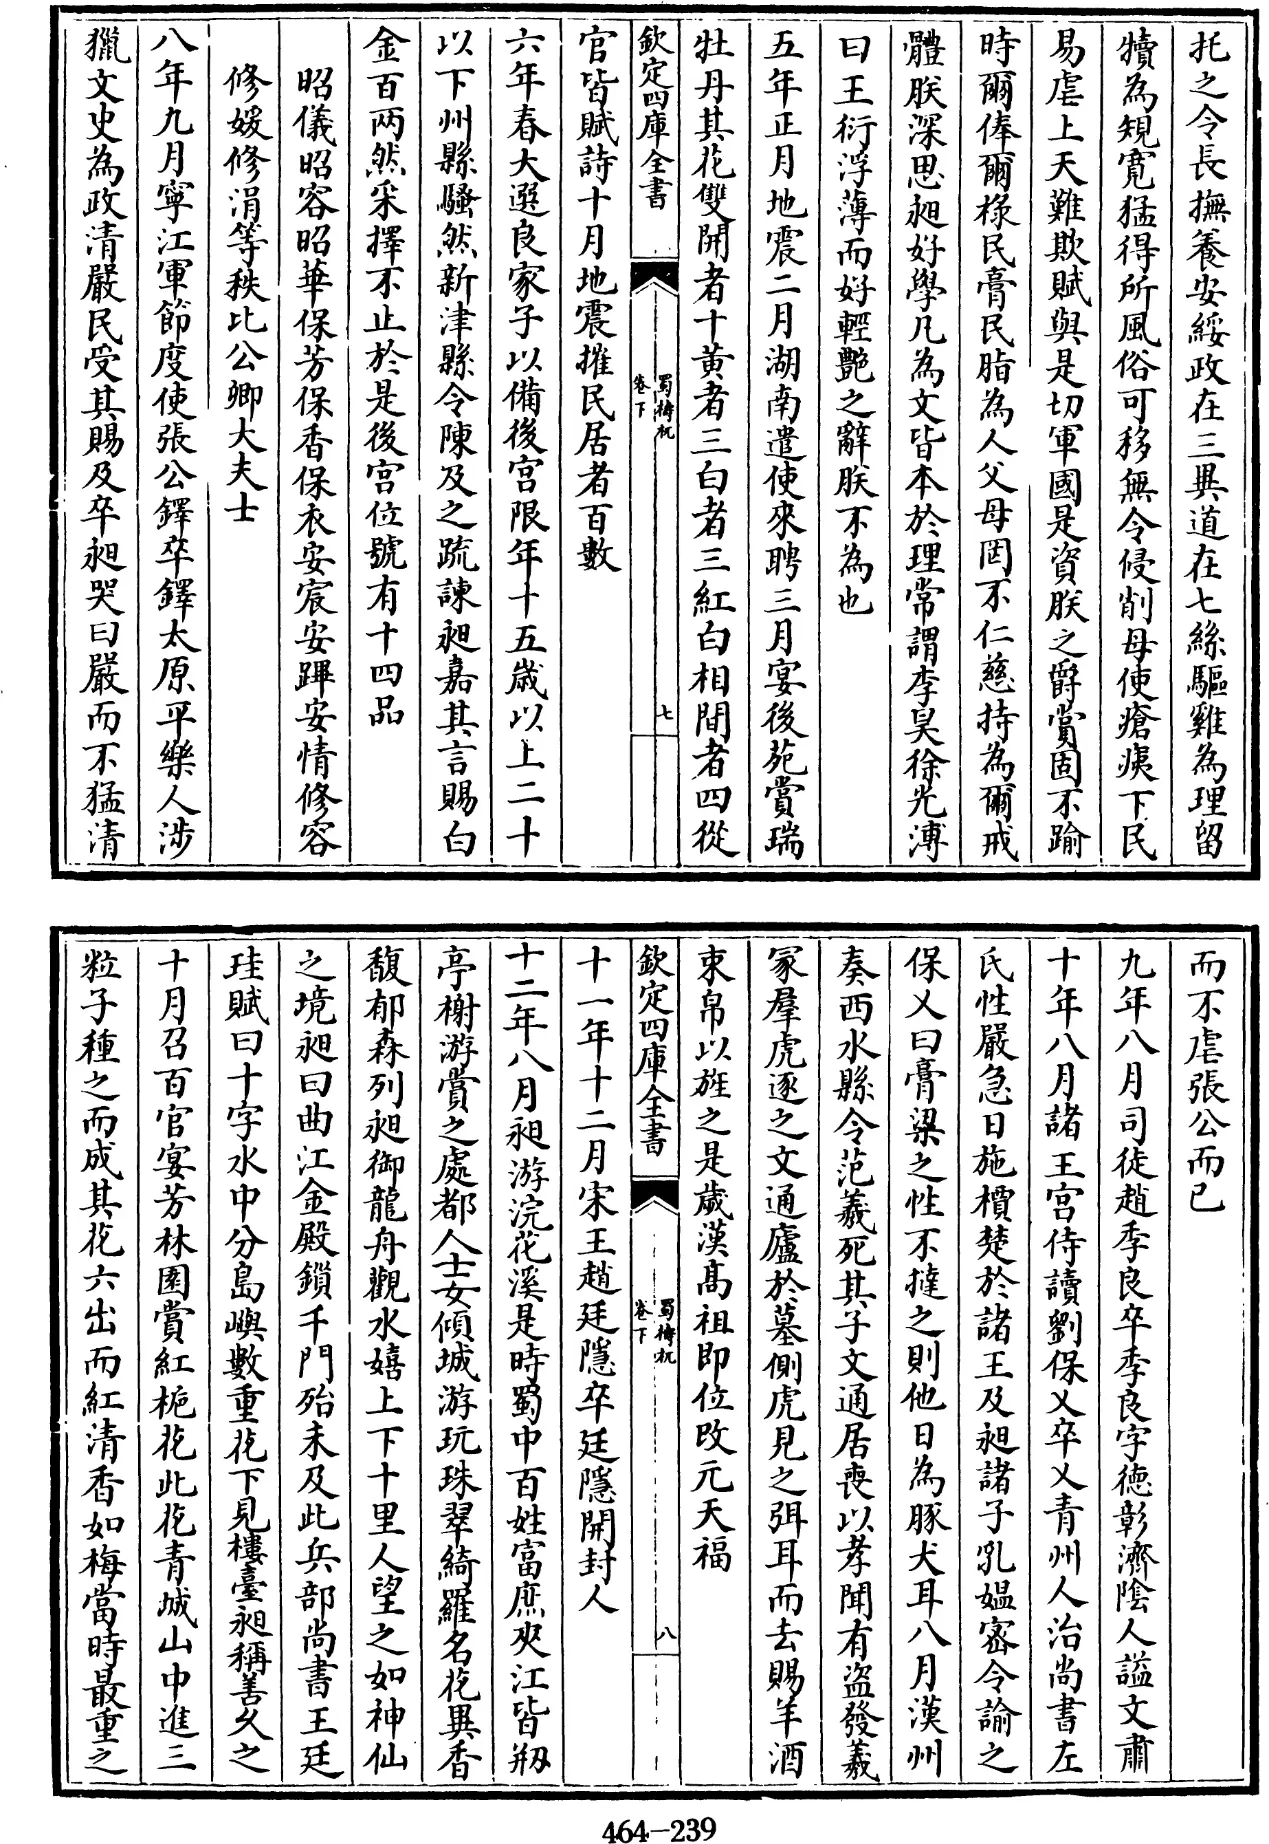 托之令長撫養安綏政在三異道在七絲驅雞為理留
犢為規寛猛得所風俗可移無令侵削毋使瘡痍下民
易虐上天難欺賦與是切軍國是資朕之爵賞固不踰
時爾俸爾祿民膏民脂為人父母罔不仁慈持為爾戒
體朕深思昶好學凡為文皆本於理常謂李昊徐光溥
曰王衍浮薄而好輕艷之辭朕不為也
五年正月地震二月湖南遣使來聘三月宴後苑賞瑞
牡丹其花雙開者十黄者三白者三紅白相間者四從
欽定四庫全書
蜀檮杌
卷下
七
官皆賦詩十月地震摧民居者百數
六年春大選良家子以備後宫限年十五歳以上二十
以下州縣騷然新津縣令陳及之疏諫昶嘉其言賜白
金百兩然采擇不止於是後宫位號有十四品
昭儀昭容昭華保芳保香保衣安宸安蹕安情修容
修媛修涓等秩比公卿大夫士
八年九月寧江軍節度使張公鐸卒鐸太原平樂人涉
獵文史為政清嚴民受其賜及卒昶哭曰嚴而不猛清
而不虐張公而已
九年八月司徒趙季良卒季良字德彰濟陰人諡文肅
十年八月諸王宫侍讀劉保乂卒乂青州人治尚書左
氏性嚴急日施檟楚於諸王及昶諸子乳媼密令諭之
保乂曰膏粱之性不撻之則他日為豚犬耳八月漢州
奏西水縣令范羲死其子文通居喪以孝聞有盗發羲
冡羣虎逐之文通廬於墓側虎見之弭耳而去賜羊酒
束帛以旌之是歳漢髙祖即位改元天福
欽定四庫全書
蜀檮杌
卷下
八
十一年十二月宋王趙廷隱卒廷隱開封人
十二年八月昶游浣花溪是時蜀中百姓富庶夾江皆剏
亭榭游賞之處都人士女傾城游玩珠翠綺羅名花異香
馥郁森列昶御龍舟觀水嬉上下十里人望之如神仙
之境昶曰曲江金殿鎖千門殆未及此兵部尚書王廷
珪賦曰十字水中分島嶼數重花下見樓臺昶稱善久之
十月召百官宴芳林園賞紅梔花此花青城山中進三
粒子種之而成其花六出而紅清香如梅當時最重之
464-239